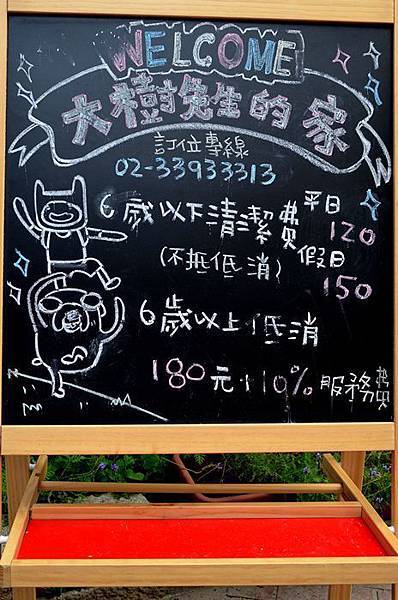 WELCOME
大樹先生的家
訂位專線
02-33933313
6歲以下清潔費 平日 120
(不抵低消) 假日 150
6歲以上低消
180元+10%服務費